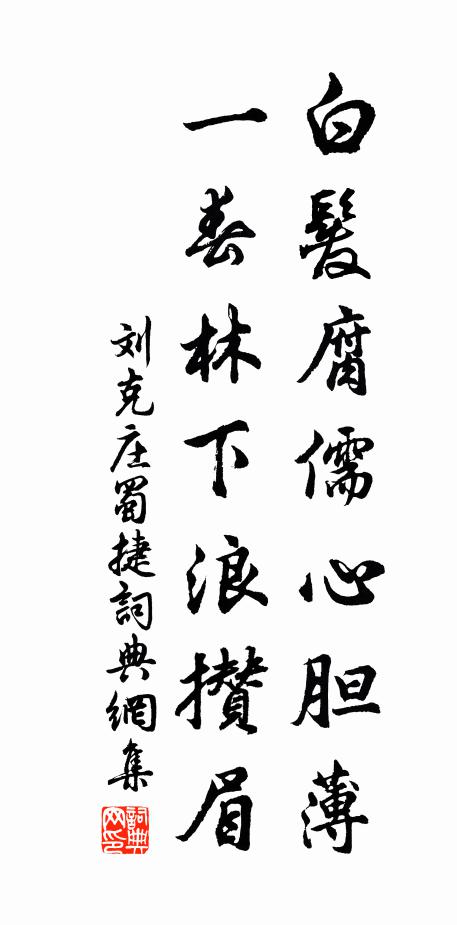 白髮腐儒心胆薄
一春林下浪攅眉
刘克庄蜀捷詞典網集
詞典網印